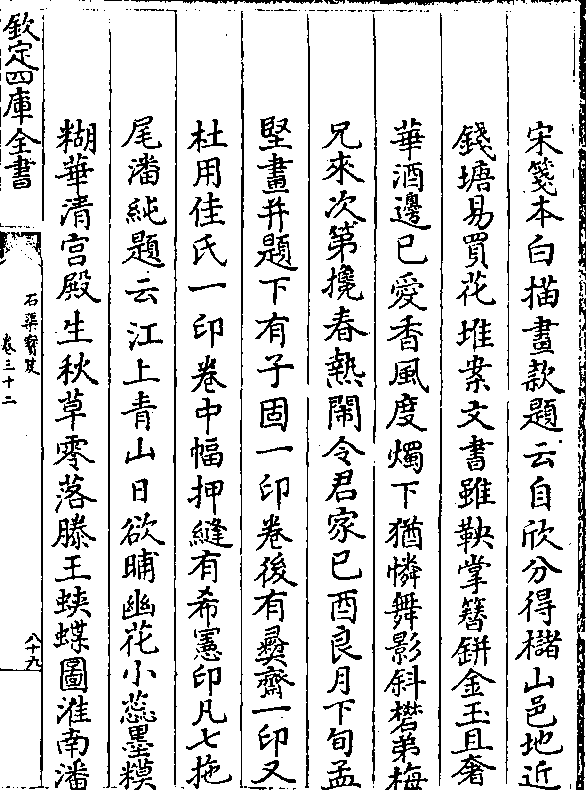 宋箋本白描畫款題云自欣分得櫧山邑地近
錢塘易買花堆案文書雖鞅掌簪缾金玉且奢
華酒邊已愛香風度燭下猶憐舞影斜礬弟梅
兄來次第攙春熱鬧令君家已酉良月下旬孟
堅畫并題下有子固一印卷後有彛齋一印又
杜用佳氏一印卷中幅押縫有希憲印凡七拖
尾潘純題云江上青山日欲晡幽花小蕊墨糢
糊華清宮殿生秋草零落滕王蛺蝶圖淮南潘
欽定四庫全書
石渠寳笈
卷三十二
八十九